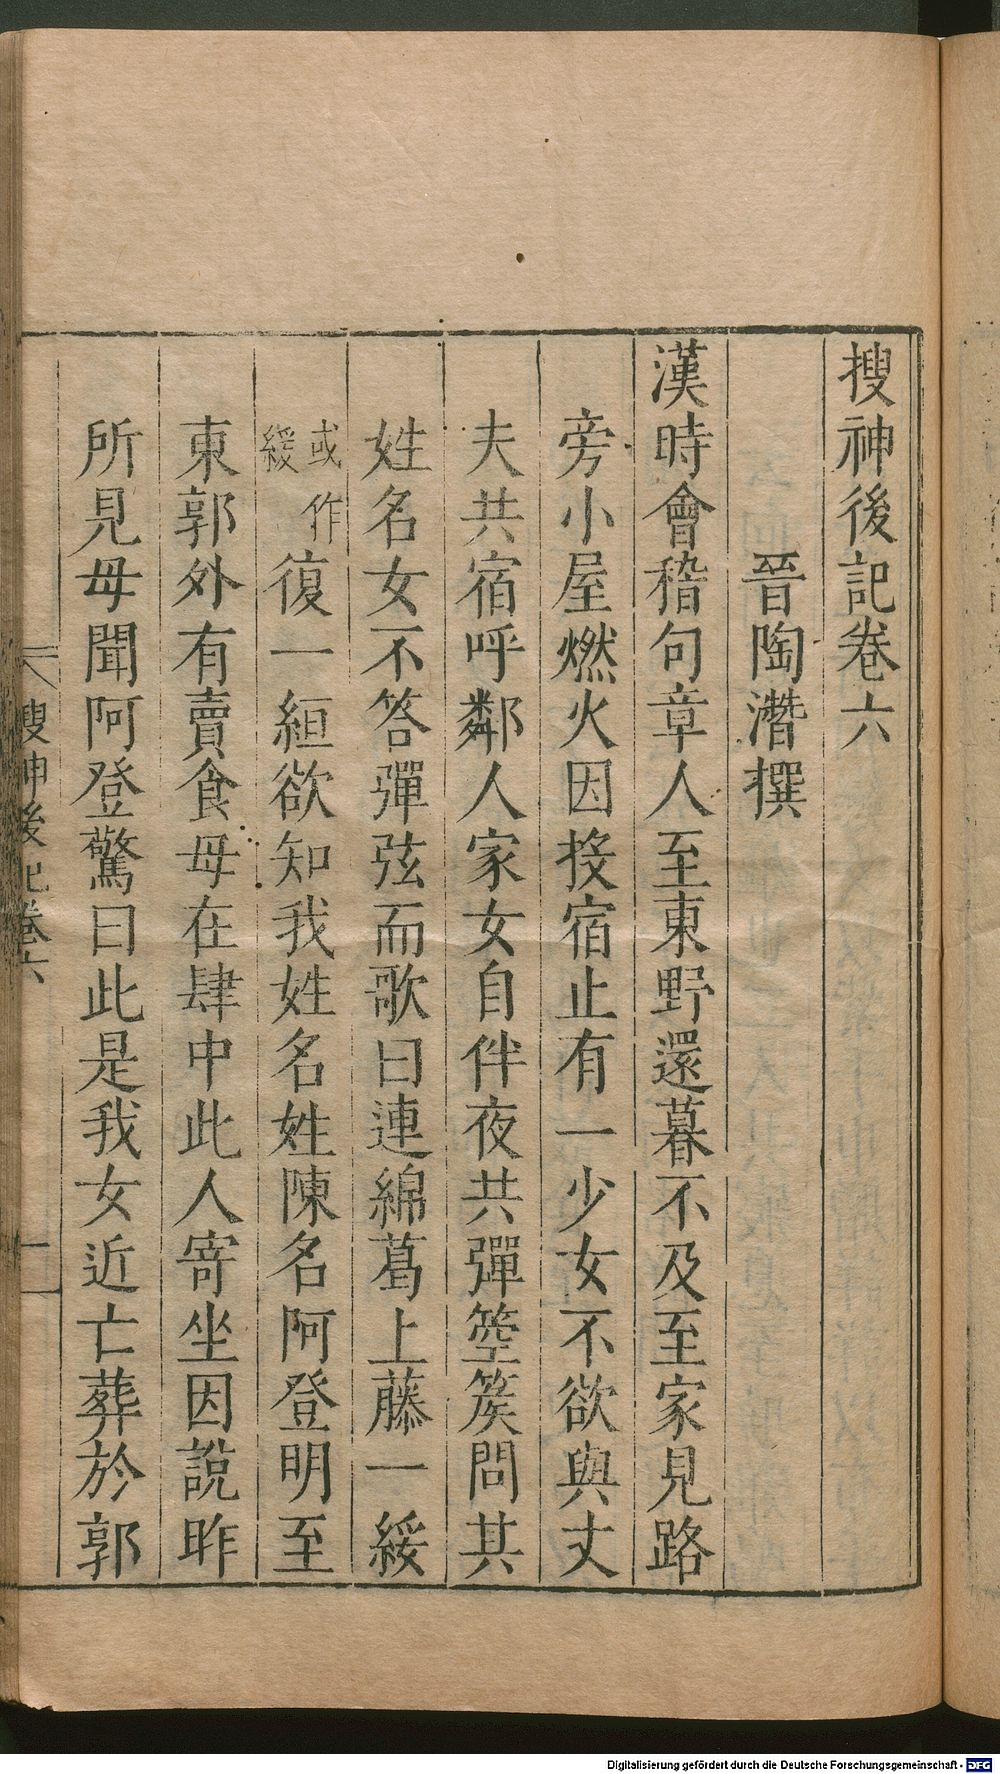 搜神後記卷六
晉陶潛撰
漢時會稽句章人至東野還暮不及至家見路
旁小屋燃火因投宿止有一少女不欲與丈
夫共宿呼鄰人家女自伴夜共彈箜篌問其
姓名女不答彈弦而歌曰連綿葛上藤一綏
或作緩復一絙欲知我姓名姓陳名阿登明至
東郭外有賣食母在肆中此人寄坐因說昨
所見母聞阿登驚曰此是我女近亡葬於郭
搜神後記卷六
一
Digitalisierung gefördert durch die Deutsche Forschungsgemeinschaft - DFG